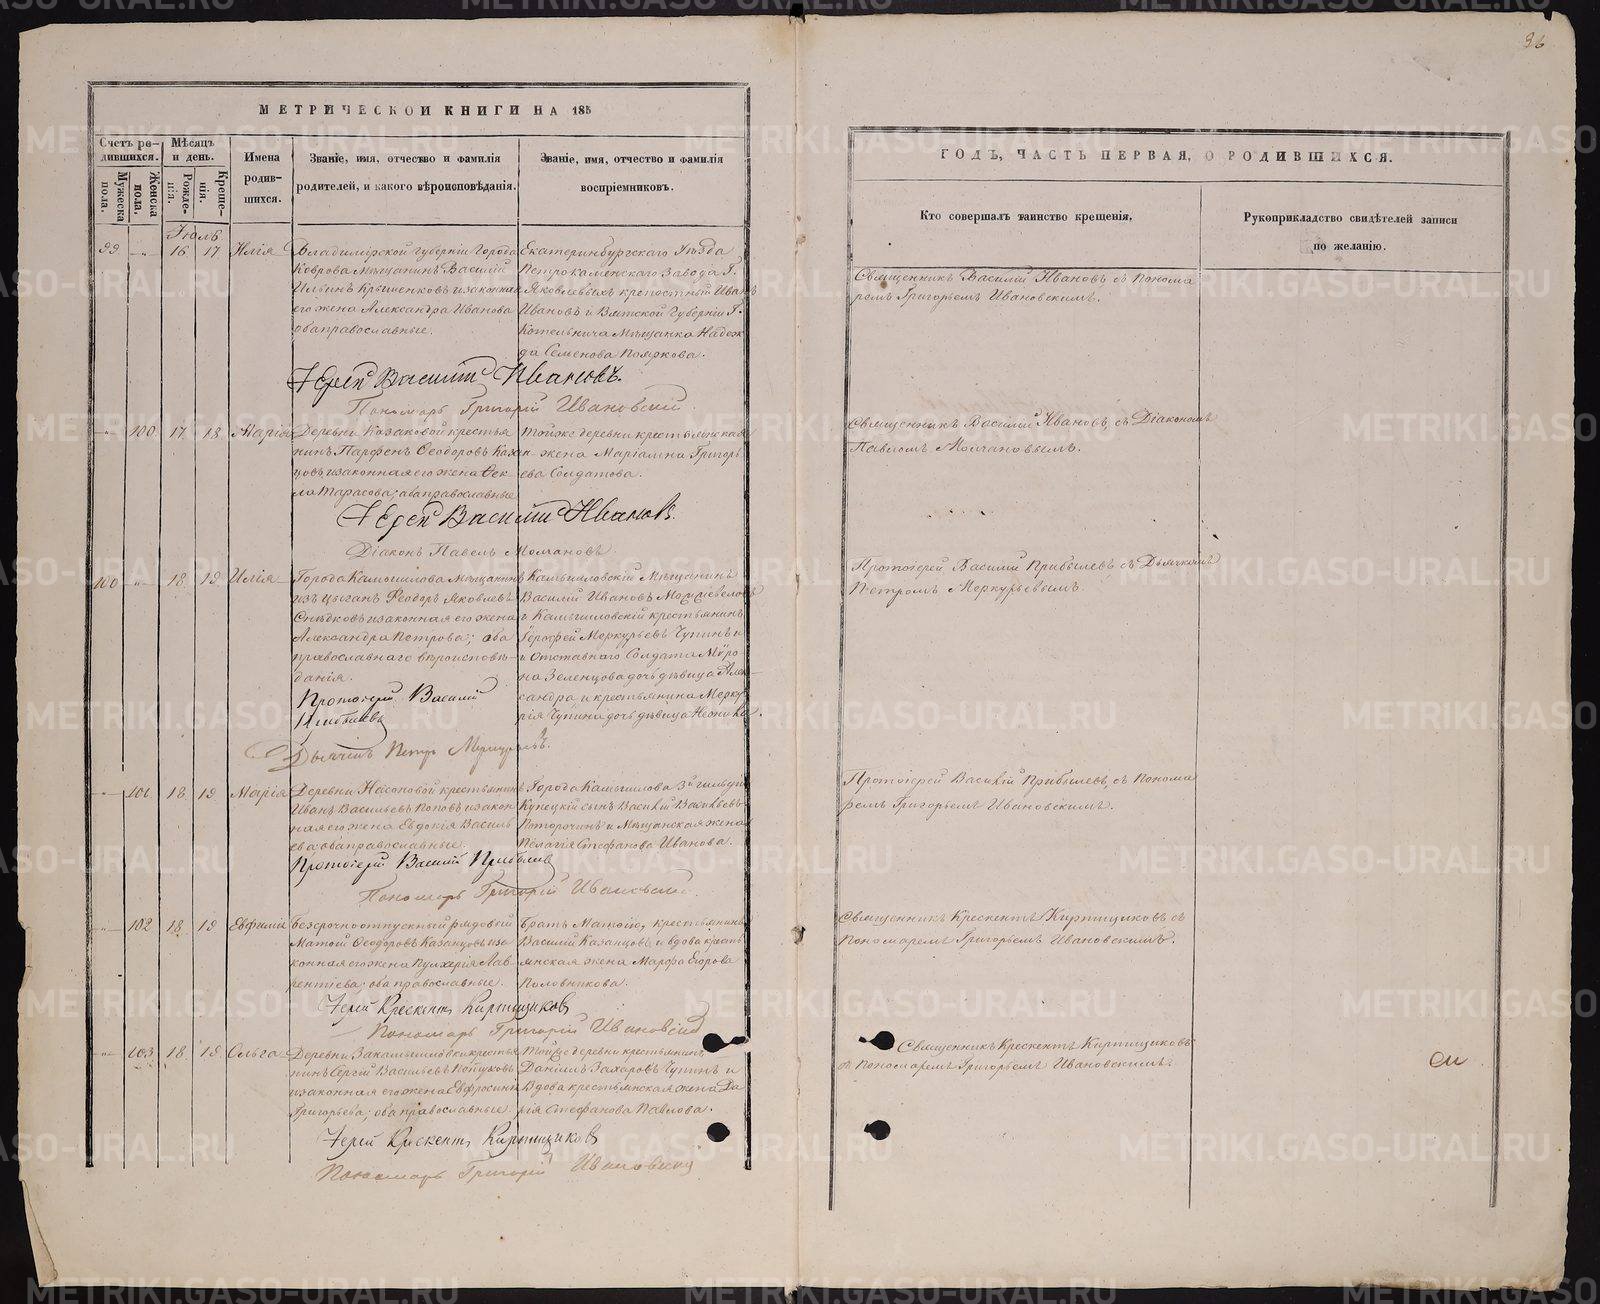 36
МЕТРИЧЕСКОЙ КНИГИ НА 185
Счетъ ро-
дившихся.
Мужеска
пола.
Женска
пола.
Мѣсяцъ
и день.
Рожде-
нія.
Креще-
нія.
Имена
родив-
шихся.
Званіе, имя, отчество и фамилія
родителей, и какого вѣроисповѣданія.
Званіе, имя, отчество и фамилія
воспріемниковъ.
Іюль
99 -"- 16 17 Илія
Владимірской Губерніи Города
Коврова Мѣщанинъ Василій
Ильинъ и законная
его жена Александра Иванова
оба православные.
Екатеринбургскаго Уѣзда
Петрокаменскаго Завода Г.
Яковлевыхъ крепостный Иванъ
Ивановъ и Вятской Губерніи Г.
Котельнича Мѣщанка Надеж
да Семенова Пояркова.
Іерей Василій Ивановъ.
Пономарь Григорій Ивановскій
-"- 100 17 18 Марія
Деревни Казаковой крестья
нинъ Парфенъ Ѳеодоровъ Казан-
цовъ и законная его жена Ѳек-
ла Тарасова; оба православные
Тойже деревни крестьянская
жена Маріамна Григорь
ева Солдатова.
Іерей Василій Ивановъ.
Діаконъ Павелъ Молчановъ
100 -"- 18 19 Илія
Города Камышлова Мѣщанинъ
изъ цыганъ Ѳеодоръ Яковлевъ
Снѣдковъ и законная его жена
Александра Петрова; оба
православнаго вѣроисповѣ-
данія.
Камышловскій Мѣщанинъ
Василій Ивановъ
и Камышловскій крестьянинъ
Ерофей Меркурьевъ Чупинъ и
и Отставнаго Солдата Міро-
на Зеленцова дочь дѣвица Алек-
сандра и крестьянина Мерку
рія Чупина дочь дѣвица Неонила.
Протоіерей Василій
Прибылевъ
Дьячекъ Петръ Меркурьевъ.
-"- 101 18 19 Марія
Деревни Насоновой крестьянинъ
Иванъ Васильевъ Поповъ и закон
ная его жена Евдокія Василь
ева оба православные.
Города Камышлова 3й гильдіи
Купецкій сынъ Василій Васильевъ
Поторочинъ и Мѣщанская жена
Пелагія Стефанова Иванова.
Протоіерей Василій Прибылев
Пономарь Григорій Ивановскій.
-"- 102 18 19 Евфимія
Безсрочноотпускный рядовой
Матѳій Ѳеодоровъ Казанцовъ и за
конная его жена Пулхерія Лав-
рентіева; оба православные.
Братъ Матѳію, крестьянинъ
Василій Казанцовъ, и вдова кресть
янская жена Марфа Егорова
Половникова.
Іерей Крескентъ Киртищиковъ
Пономарь Григорій Ивановскій
-"- 103 18 19 Ольга
Деревни Закамышловки крестья
нинъ Сергій Васильевъ
и законная его жена Евфросинія
Григорьева; оба православные.
Тойже деревни крестьянинъ
Даніилъ Захаровъ Чупинъ и
Вдова крестьянская жена Да
рія Стефанова Павлова.
Іерей Крескентъ Киртищиковъ
Пономарь Григорій Ивановскій
ГОДЪ, ЧАСТЬ ПЕРВАЯ, О РОДИВШИХСЯ.
Кто совершалъ таинство крещенія,
Рукоприкладство свидѣтелей записи
по желанію.
Священникъ Василій Ивановъ съ Понома
ремъ Григорьемъ Ивановскимъ.
Священникъ Василій Ивановъ, съ Діакономъ
Павломъ Молчановымъ.
Протоіерей Василій Прибылевъ, съ Дьячкомъ
Петромъ Меркурьевымъ
Протоіерей Василій Прибылевъ, съ Понома
ремъ Григорьемъ Ивановскимъ.
Священникъ Крескентъ Киртищиковъ съ
Пономаремъ Григорьемъ Ивановскимъ.
Священникъ Крескентъ Киртищиковъ
съ Пономаремъ Григорьемъ Ивановскимъ
METRIKI.GASO-URAL.RU